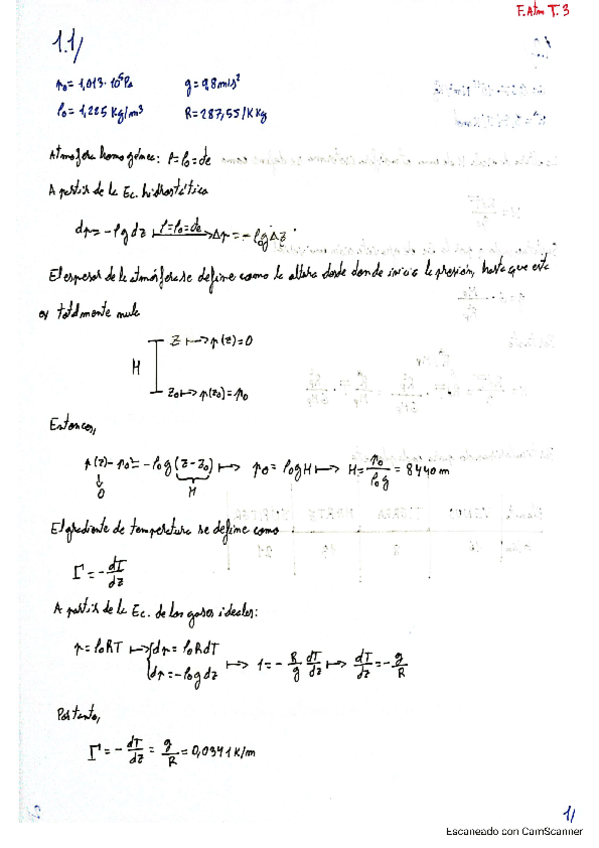 F. Atm T. 3
1.1/
p₀ = 1,013·10⁵ Pa g = 9,8 m/s²
ρ₀ = 1,225 Kg/m³ R = 287,55 J/K Kg
Atmósfera homogénea: ρ = ρ₀ = cte
A partir de la Ec. hidrostática
dp = -ρg dz ⟼ ρ=ρ₀=cte Δp = -ρ₀gΔz
El espesor de la atmósfera se define como la altura desde donde inicia la presión, hasta que esta
es totalmente nula
z ⟼ p(z) = 0
H
z₀ ⟼ p(z₀) = p₀
Entonces,
p(z) - p₀ = -ρ₀g(z - z₀) ⟼ p₀ = ρ₀gH ⟼ H = p₀/ρ₀g = 8440 m
0 H
El gradiente de temperatura se define como
Γ = -dT/dz
A partir de la Ec. de los gases ideales:
p = ρ₀RT ⟼ { dp = ρ₀RdT
dp = -ρ₀g dz ⟼ 1 = -R/g dT/dz ⟼ dT/dz = -g/R
Por tanto,
Γ = -dT/dz = g/R = 0,0341 K/m
1/
Escaneado con CamScanner